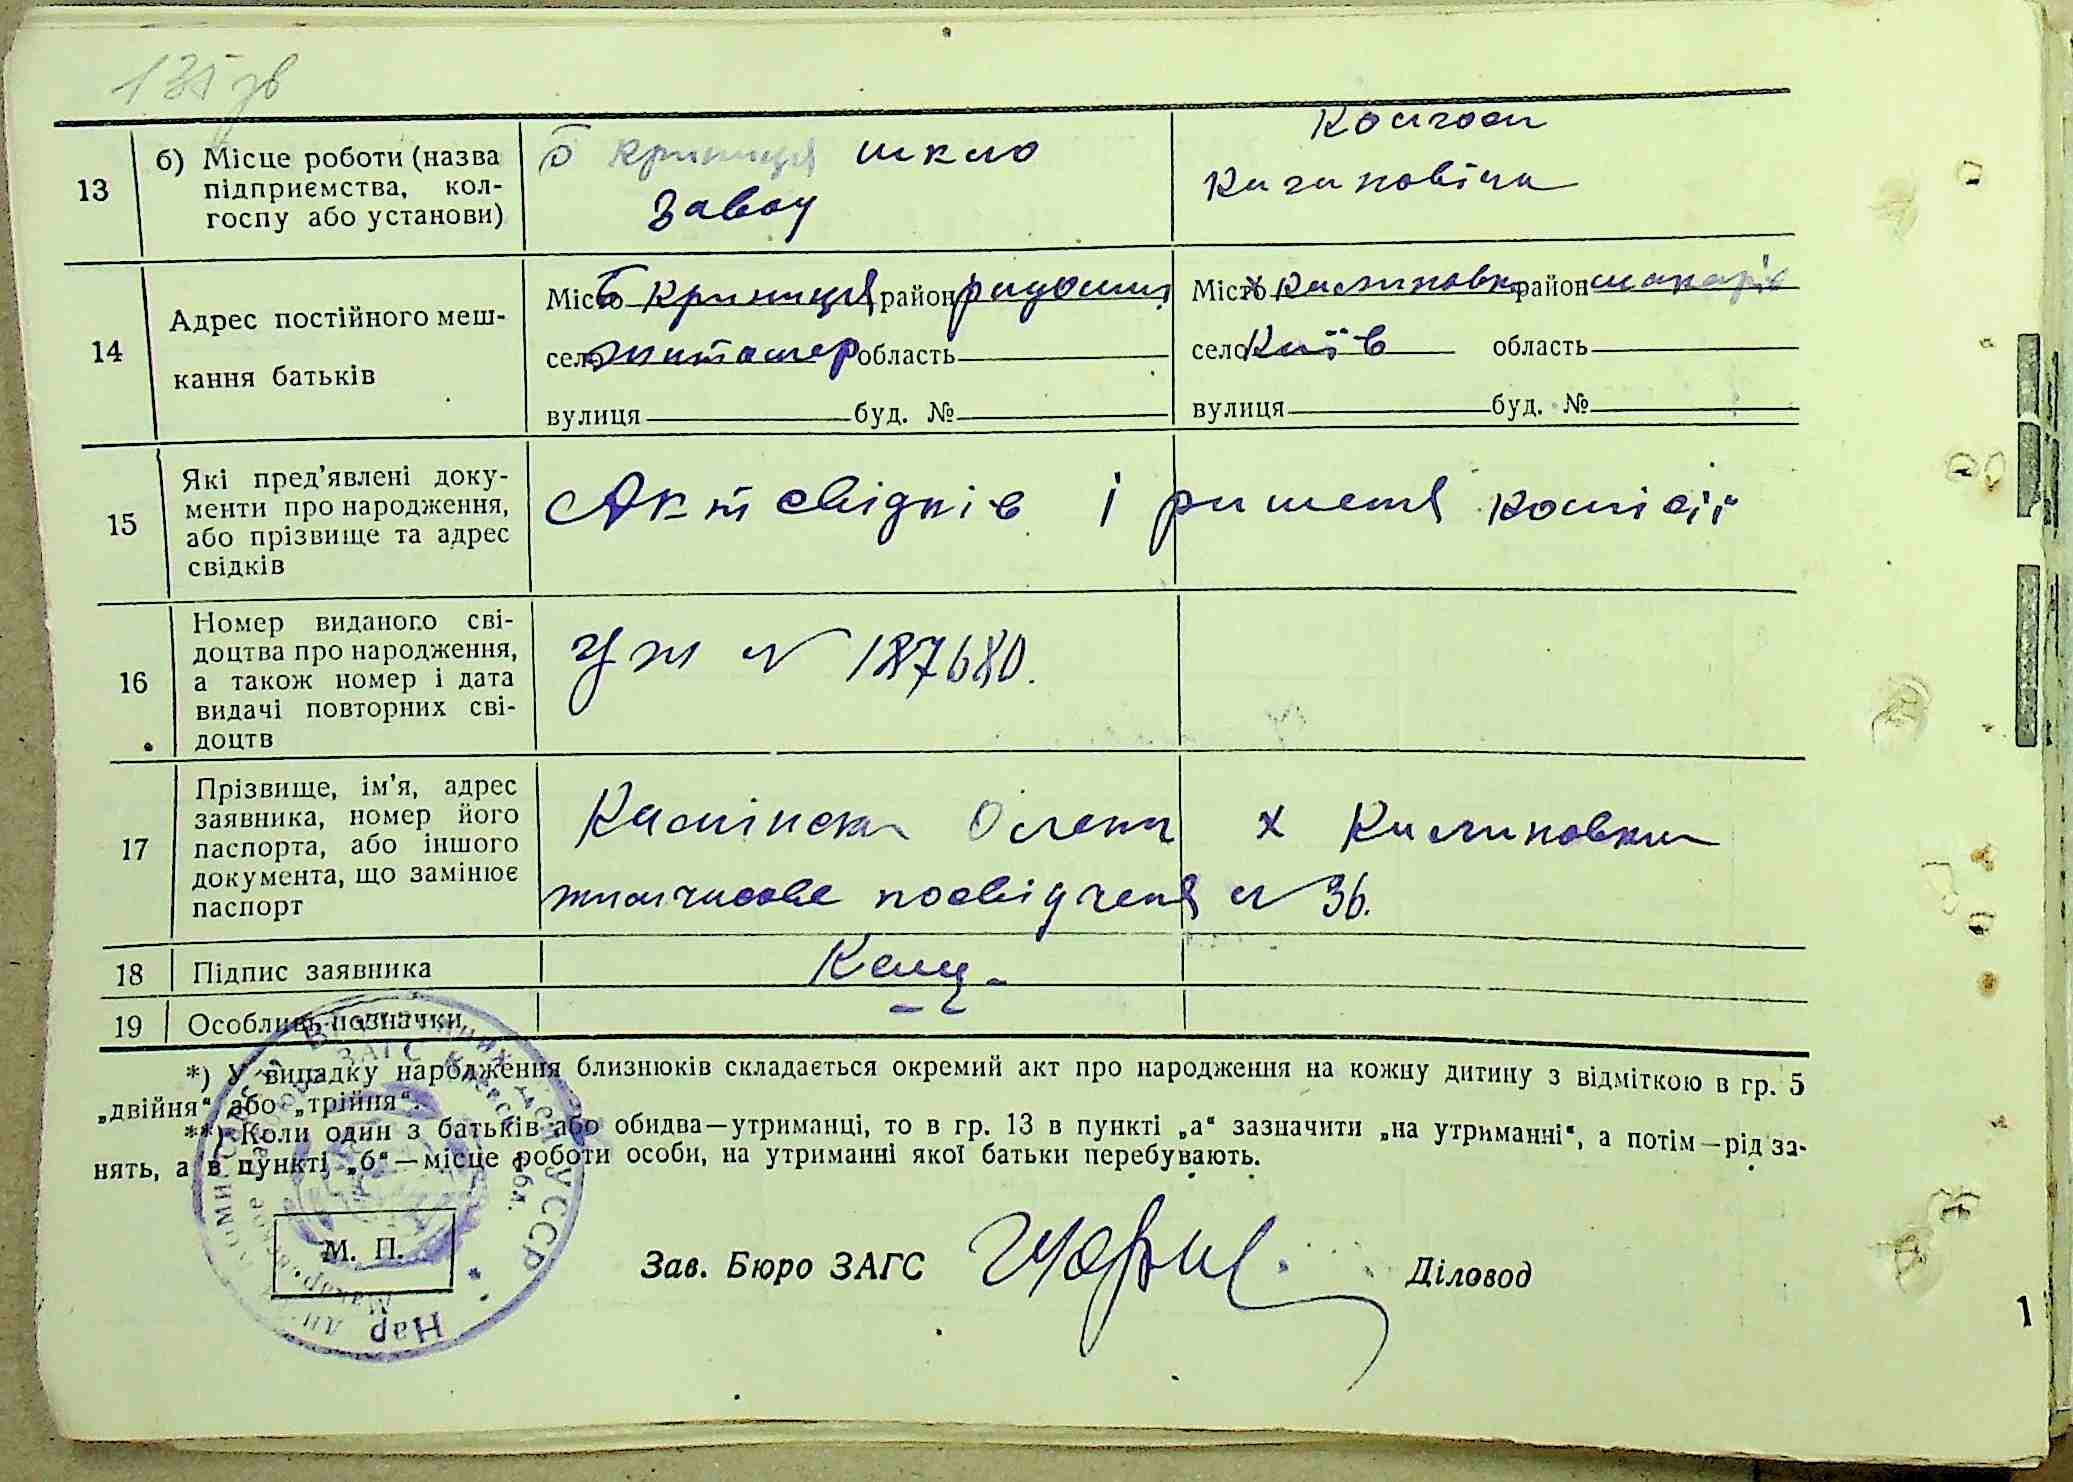 135 зв
13
б) Місце роботи (назва
підприємства, кол-
госпу або установи)
б криниця шкло
завод
Колгосп
14
Адрес постійного меш-
кання батьків
Місто Б Криниця район
село Житомер область
вулиця буд. №
Місто х район макарів
село Київ область
вулиця буд. №
15
Які пред'явлені доку-
менти про народження,
або прізвище та адрес
свідків
Акт свідків і ришеня комісії
16
Номер виданого сві-
доцтва про народження,
а також номер і дата
видачі повторних сві-
доцтв
УЖ № 187680.
17
Прізвище, ім'я, адрес
заявника, номер його
паспорта, або іншого
документа, що замінює
паспорт
Камінска Олена х Калиновка
посвідченя № 36.
18
Підпис заявника
19
Особливі позначки
*) У випадку народження близнюків складається окремий акт про народження на кожну дитину з відміткою в гр. 5
„двійня“ або „трійня“.
**) Коли один з батьків або обидва—утриманці, то в гр. 13 в пункті „а“ зазначити „на утриманні“, а потім—рід за-
нять, а в пункті „б“—місце роботи особи, на утриманні якої батьки перебувають.
М. П.
Зав. Бюро ЗАГС
Діловод
УССР
Нар
ЗАГС
1